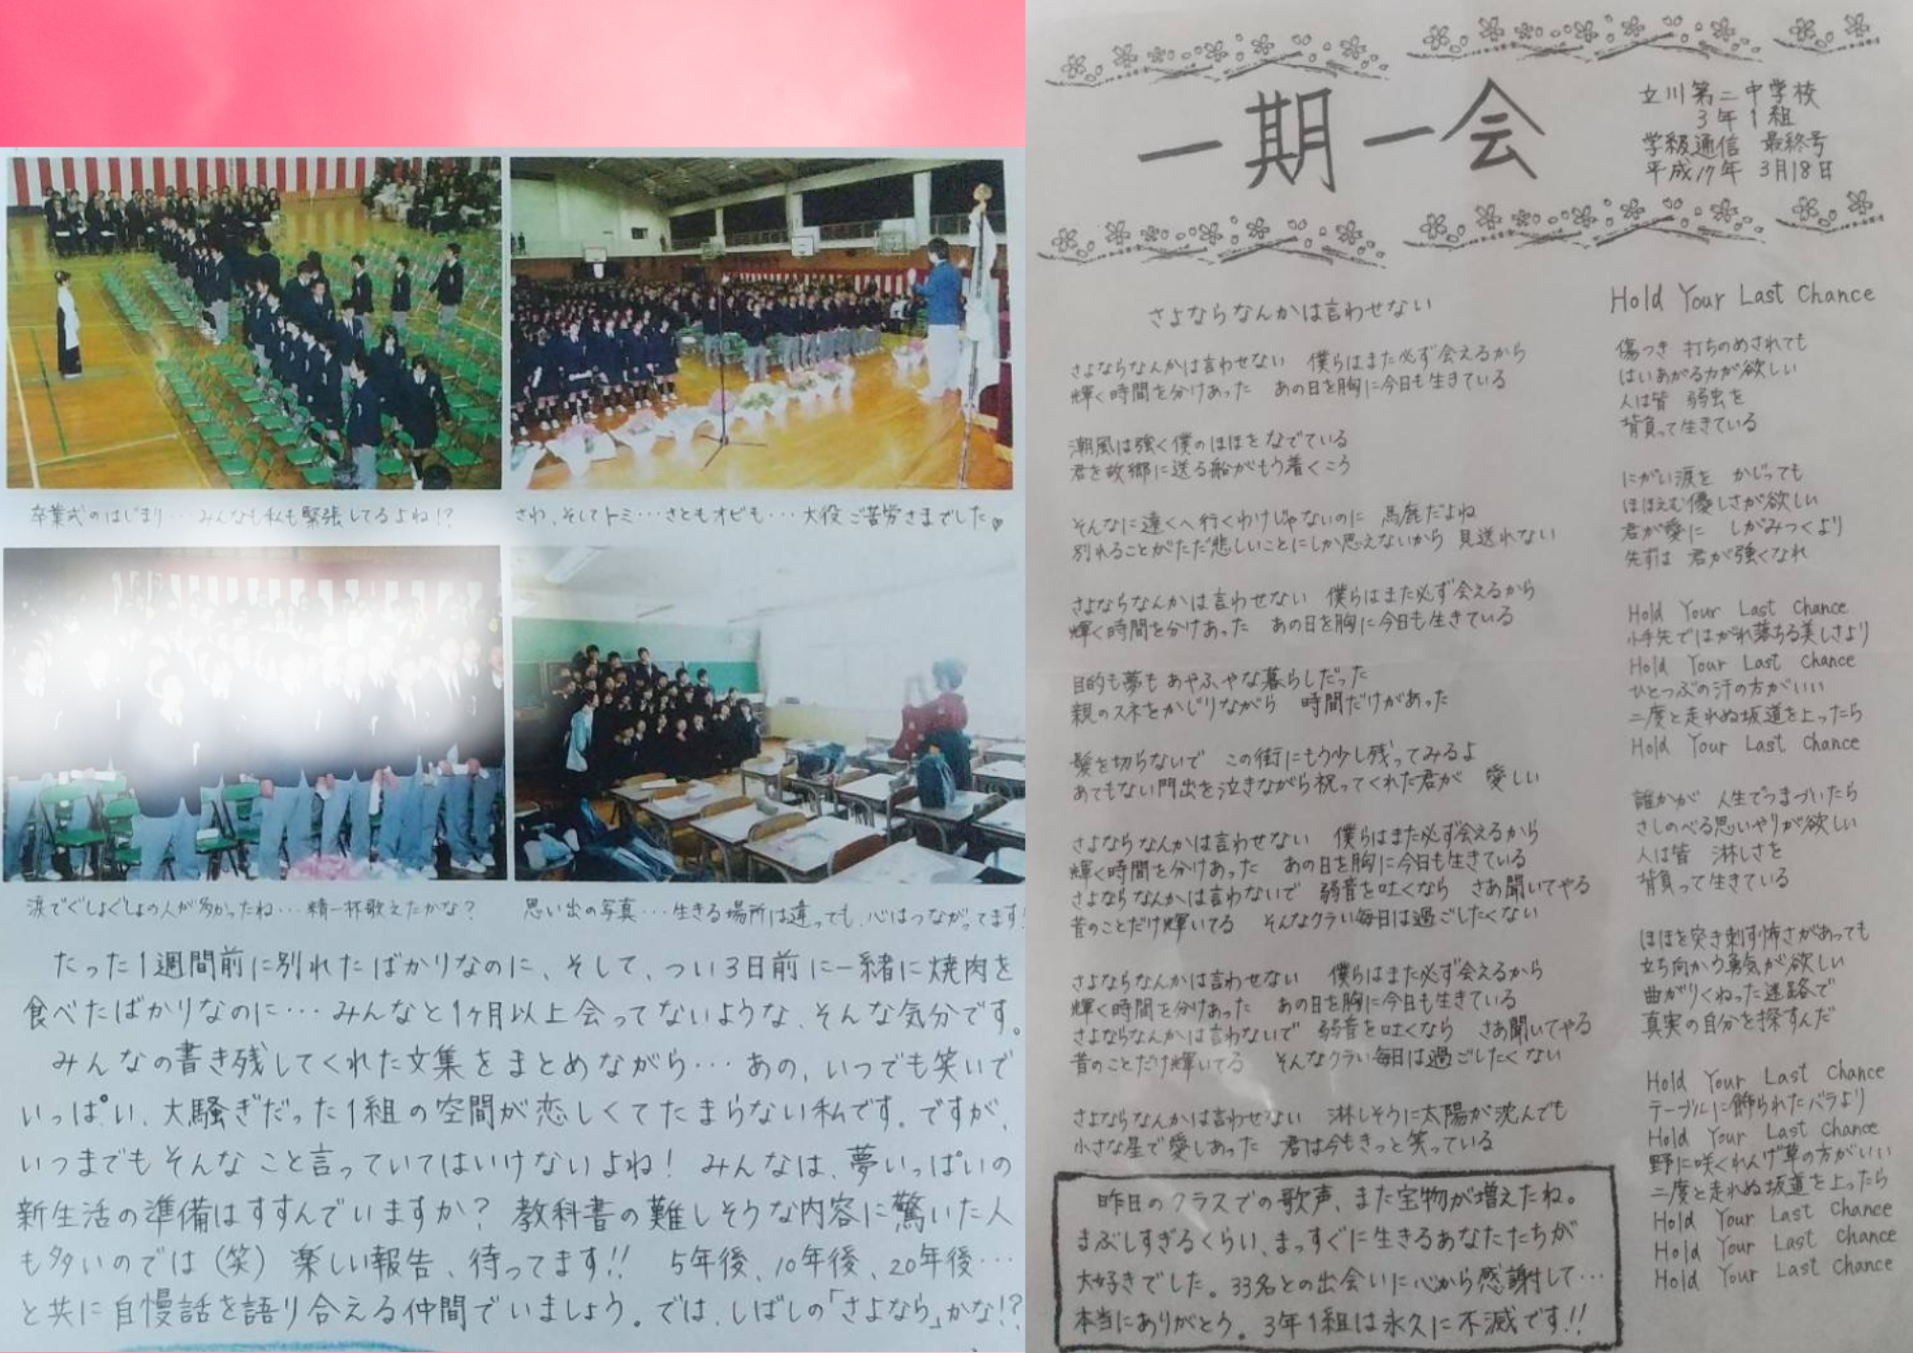 卒業式のはじまり…みんなも私も緊張してるよね!?
さわ、そしてトミ…さともオビも…大役ご苦労さまでした♥
涙でぐしょぐしょの人が多かったね…精一杯歌えたかな?
思い出の写真…生きる場所は違っても、心はつながってます!
たった1週間前に別れたばかりなのに、そして、つい3日前に一緒に焼肉を
食べたばかりなのに…みんなと1ヶ月以上会ってないような、そんな気分です。
みんなの書き残してくれた文集をまとめながら…あの、いつでも笑いで
いっぱい、大騒ぎだった1組の空間が恋しくてたまらない私です。ですが、
いつまでもそんなこと言っていてはいけないよね! みんなは、夢いっぱいの
新生活の準備はすすんでいますか? 教科書の難しそうな内容に驚いた人
も多いのでは(笑) 楽しい報告、待ってます!! 5年後、10年後、20年後…
と共に自慢話を語り合える仲間でいましょう。では、しばしの「さよなら」かな!?
一期一会
立川第二中学校
3年1組
学級通信 最終号
平成17年 3月18日
さよならなんかは言わせない
さよならなんかは言わせない 僕らはまた必ず会えるから
輝く時間を分けあった あの日を胸に今日も生きている
潮風は強く僕のほほをなでている
君を故郷に送る船がもう着くころ
そんなに遠くへ行くわけじゃないのに 馬鹿だよね
別れることがただ悲しいことにしか思えないから 見送れない
さよならなんかは言わせない 僕らはまた必ず会えるから
輝く時間を分けあった あの日を胸に今日も生きている
目的も夢も あやふやな暮らしだった
親のスネをかじりながら 時間だけがあった
髪を切らないで この街にもう少し残ってみるよ
あてもない門出を泣きながら祝ってくれた君が 愛しい
さよならなんかは言わせない 僕らはまた必ず会えるから
輝く時間を分けあった あの日を胸に今日も生きている
さよならなんかは言わないで 弱音を吐くなら さあ聞いてやる
昔のことだけ輝いてる そんなクラい毎日は過ごしたくない
さよならなんかは言わせない 僕らはまた必ず会えるから
輝く時間を分けあった あの日を胸に今日も生きている
さよならなんかは言わないで 弱音を吐くなら さあ聞いてやる
昔のことだけ輝いてる そんなクラい毎日は過ごしたくない
さよならなんかは言わせない 淋しそうに太陽が沈んでも
小さな星で愛しあった 君は今もきっと笑っている
昨日のクラスでの歌声、また宝物が増えたね。
まぶしすぎるくらい、まっすぐに生きるあなたたちが
大好きでした。33名との出会いに心から感謝して…
本当にありがとう。3年1組は永久に不滅です!!
Hold Your Last Chance
傷つき 打ちのめされても
はいあがる力が欲しい
人は皆 弱虫を
背負って生きている
にがい涙を かじっても
ほほえむ優しさが欲しい
君が愛に しがみつくより
先ずは 君が強くなれ
Hold Your Last Chance
小手先ではがれ落ちる美しさより
Hold Your Last Chance
ひとつぶの汗の方がいい
二度と走れぬ坂道を上ったら
Hold Your Last Chance
誰かが 人生でつまづいたら
さしのべる思いやりが欲しい
人は皆 淋しさを
背負って生きている
ほほを突き刺す怖さがあっても
立ち向かう勇気が欲しい
曲がりくねった迷路で
真実の自分を探すんだ
Hold Your Last Chance
テーブルに飾られたバラより
Hold Your Last Chance
野に咲くれんげ草の方がいい
二度と走れぬ坂道を上ったら
Hold Your Last Chance
Hold Your Last Chance
Hold Your Last Chance